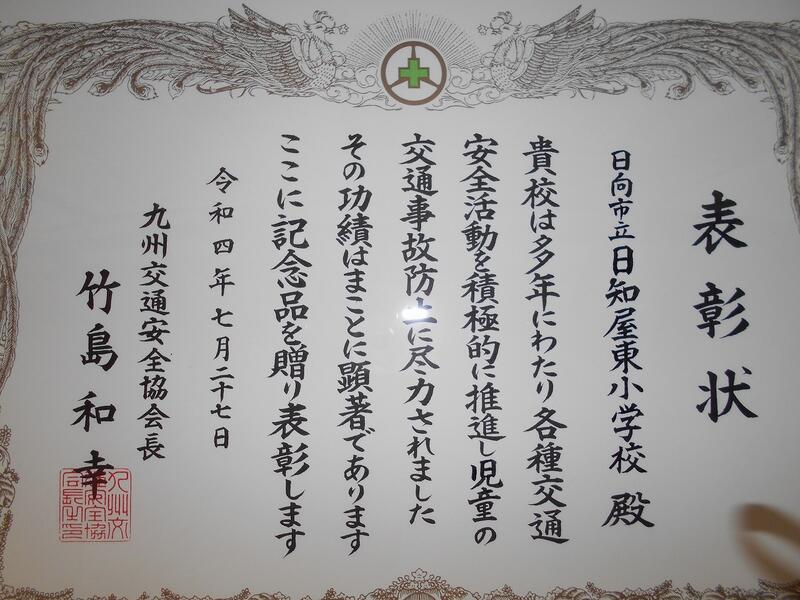 表彰状
日向市立日知屋東小学校 殿
貴校は多年にわたり各種交通
安全活動を積極的に推進し児童の
交通事故防止に尽力されました
その功績はまことに顕著であります
ここに記念品を贈り表彰します
令和四年七月二十七日
九州交通安全協会長
竹島和幸